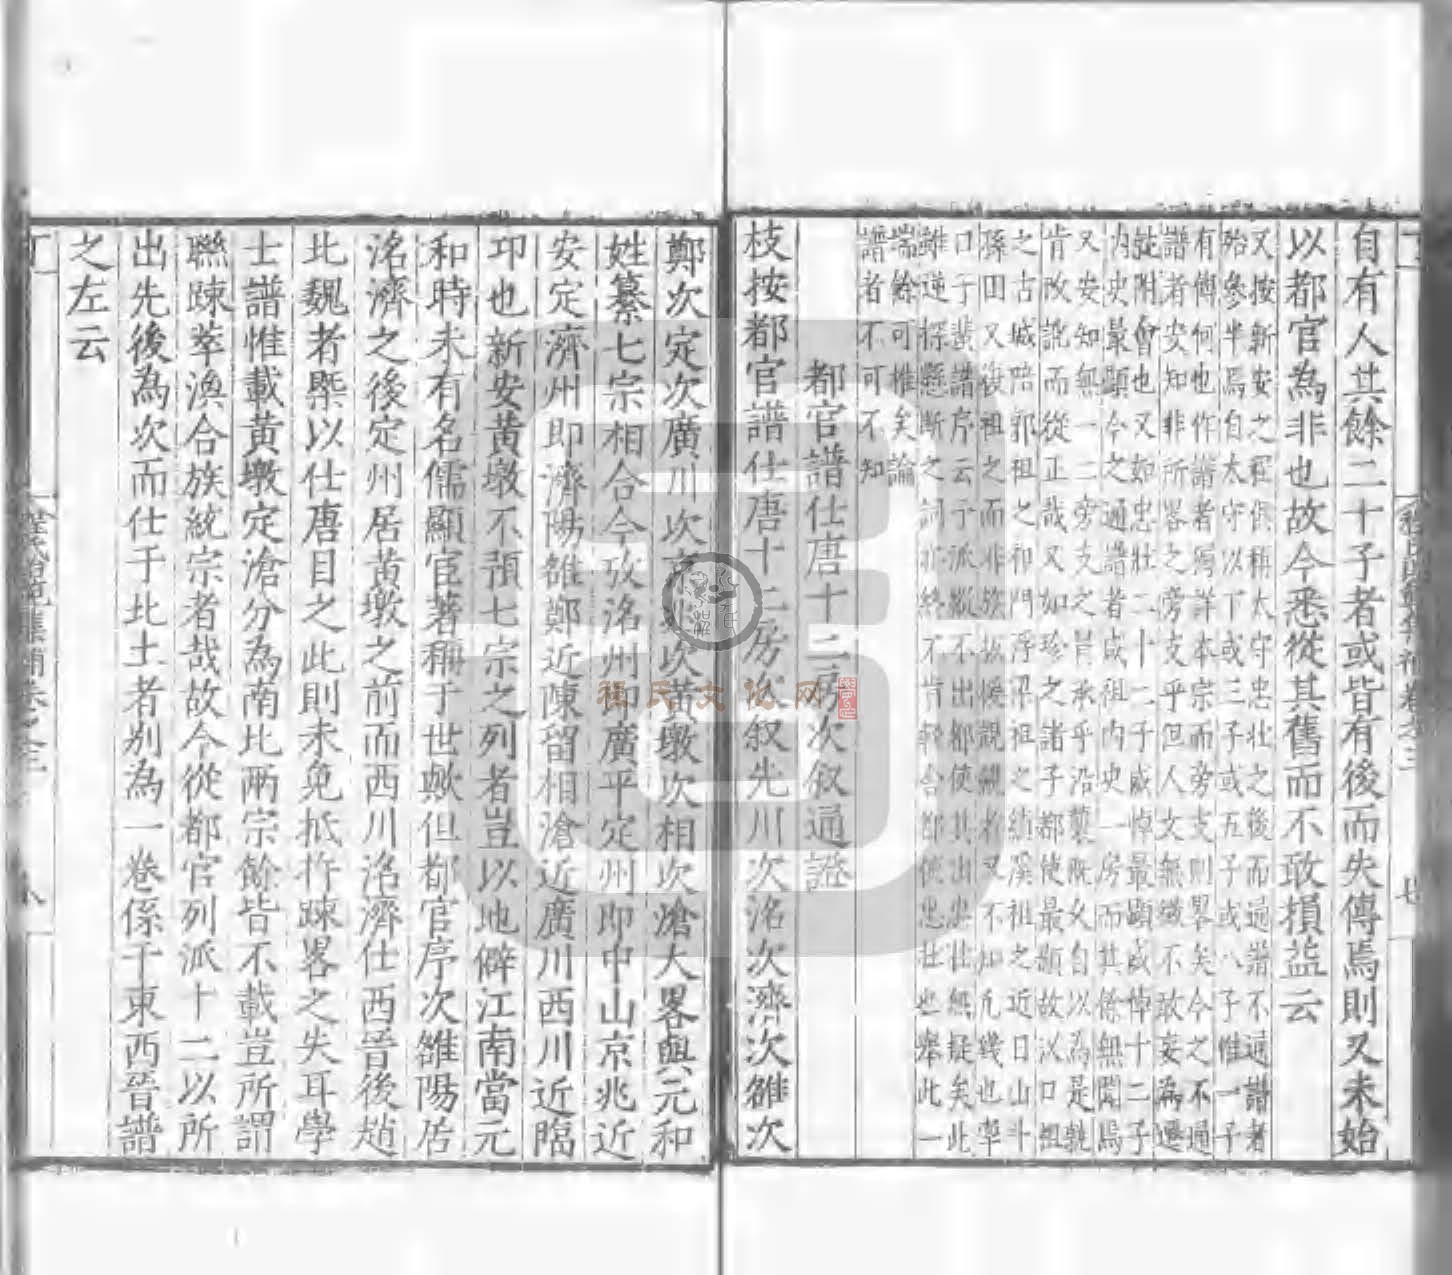 自有人其餘二十子者或皆有後而失傳焉則又未始
以都官為非也故今悉從其舊而不敢損益云
又按新安之程俱稱太守忠壯之後而通譜不通譜者
殆參半焉自太守以下或三子或五子或八子惟一子
有傳何也作譜者寫詳本宗而旁支則畧矣今之不通
譜者安知非所畧之旁支乎但人文無纖不敢妄為遷
就附會也又如忠壯二十二子咸悼最顯咸悼十二子
內史最顯今之通譜者咸祖內史一房而其餘無聞焉
又安知無一二旁支之
肯改說而從正哉又如珍之諸子都使最顯故汉口祖
之古城陪郭祖之和門浮梁祖之績溪祖之近日山斗
孫田又復祖之而非族
口子蜚譜序云予派
離逆探懸斷之詞
端餘可推矣論
譜者不可不知
都官譜仕唐十二房次叙通證
枝按都官譜仕唐十二房次叙先川次洺次濟次雒次
鄭次定次廣川次京兆次黃墩次相次滄大畧與元和
姓纂七宗相合今攷洺州即廣平定州即中山京兆近
安定濟州即濟陽雒鄭近陳留相滄近廣川西川近臨
卭也新安黃墩不預七宗之列者豈以地僻江南當元
和時未有名儒顯宦著稱于世歟但都官序次雒陽居
洺濟之後定州居黃墩之前而西川洺濟仕西晉後趙
北魏者槩以仕唐目之此則未免抵牾踈畧之失耳學
士譜惟載黃墩定滄分為南北兩宗餘皆不載豈所謂
聯踈萃渙合族統宗者哉故今從都官列派十二以所
出先後為次而仕于北土者別為一卷係于東西晉譜
之左云
程氏文化网